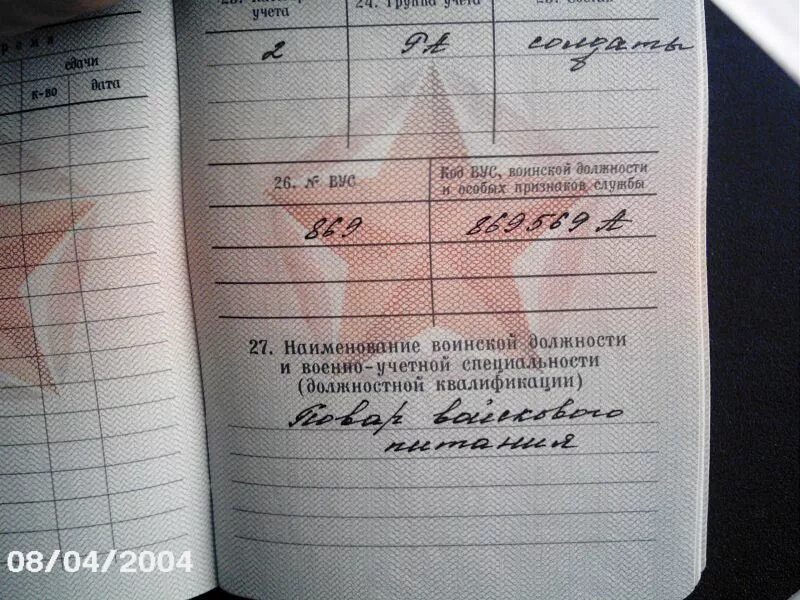 сдачи
к-во
дата
учета
24. Группа учета
25. Состав
2
РА
солдаты
26. № ВУС
Код ВУС, воинской должности
и особых признаков службы
869
869569 А
27. Наименование воинской должности
и военно-учетной специальности
(должностной квалификации)
Повар войскового
питания
08/04/2004